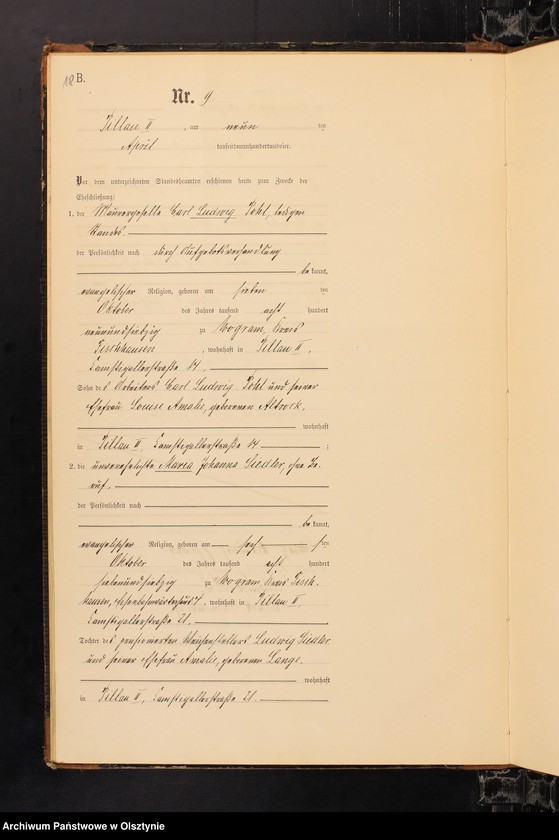 12 B.
Nr. 9.
Pillau II, am neun ten
April tausendneunhundertundvier.
Vor dem unterzeichneten Standesbeamten erschienen heute zum Zwecke der
Eheschließung:
1. der Maurergeselle Carl Ludwig Pohl, ledigen
Standes.
der Persönlichkeit nach durch Aufgebotsverhandlung
be kannt,
evangelischer Religion, geboren am sieben ten
Oktober des Jahres tausend acht hundert
neunundsiebzig zu Wogram, Kreis
Fischhausen, wohnhaft in Pillau II,
Camstigallerstraße 14.
Sohn des Arbeiters Carl Ludwig Pohl und seiner
Ehefrau Louise Amalie, geborenen Altrock,
wohnhaft
in Pillau II, Camstigallerstraße 14 ;
2. die unverehelichte Maria Johanna Siedler, ohne Be-
ruf.
der Persönlichkeit nach
be kannt,
evangelischer Religion, geboren am sech s ten
Oktober des Jahres tausend acht hundert
siebenundsiebzig zu Wogram, Kreis Fisch-
hausen, wohnhaft in Pillau II,
Camstigallerstraße 21.
Tochter des pensionierten Weichenstellers Ludwig Siedler
und seiner Ehefrau Amalie, geborenen Lange.
wohnhaft
in Pillau II, Camstigallerstraße 21.
Archiwum Państwowe w Olsztynie